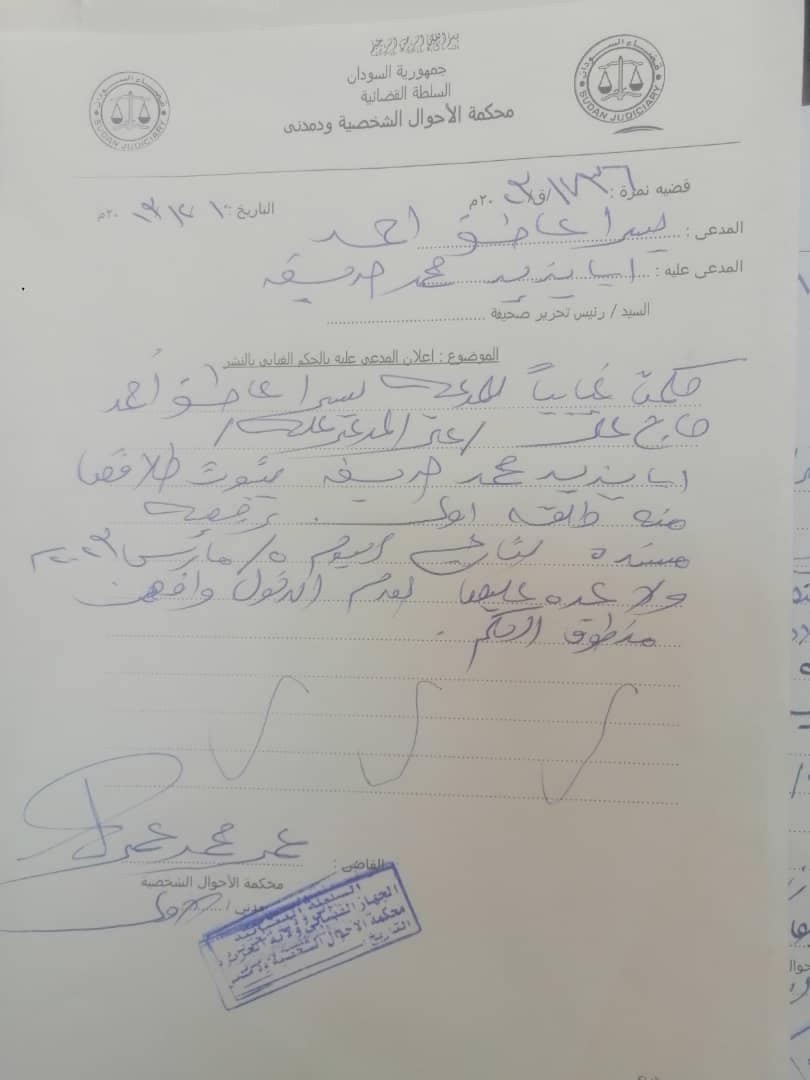 بسم الله الرحمن الرحيم
جمهورية السودان
السلطة القضائية
محكمة الأحوال الشخصية ودمدنى
قضاء السودان
SUDAN JUDICIARY
قضاء السودان
SUDAN JUDICIARY
قضيه نمرة : ١٧٣٦/ق/ ٢٠٢٣م
التاريخ :
المدعى : يسرا عاطف احمد
المدعى عليه : ابا يزيد محمد
السيد / رئيس تحرير صحيفة
الموضوع : اعلان المدعى عليه بالحكم الغيابى بالنشر
حكمت غيابياً للمدعيه يسرا عاطف أحمد
على / المدعى عليه /
ابا يزيد محمد بثبوت طلاقها
منه طلقه اولى . رجعيه
مسنده ليوم ٥/ مارس ٢٠٢٣
ولا عده عليها لعدم الدخول وافهمت
منطوق الحكم .
القاضى : عمر محمد عمر
محكمة الأحوال الشخصية
مدنى /
السلطة القضائية
الجهاز القضائي ولاية الجزيرة
محكمة الاحوال الشخصية ودمدني
التاريخ: